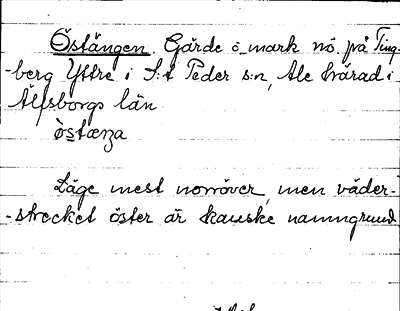 Östängen. Gärde o mark nö. på Ting-
-berg Yttre i S:t Peder s:n, Ale härad i
Älfsborgs län
östæŋa
Läge mest norröver, men väder-
-strecket öster är kanske namngrund